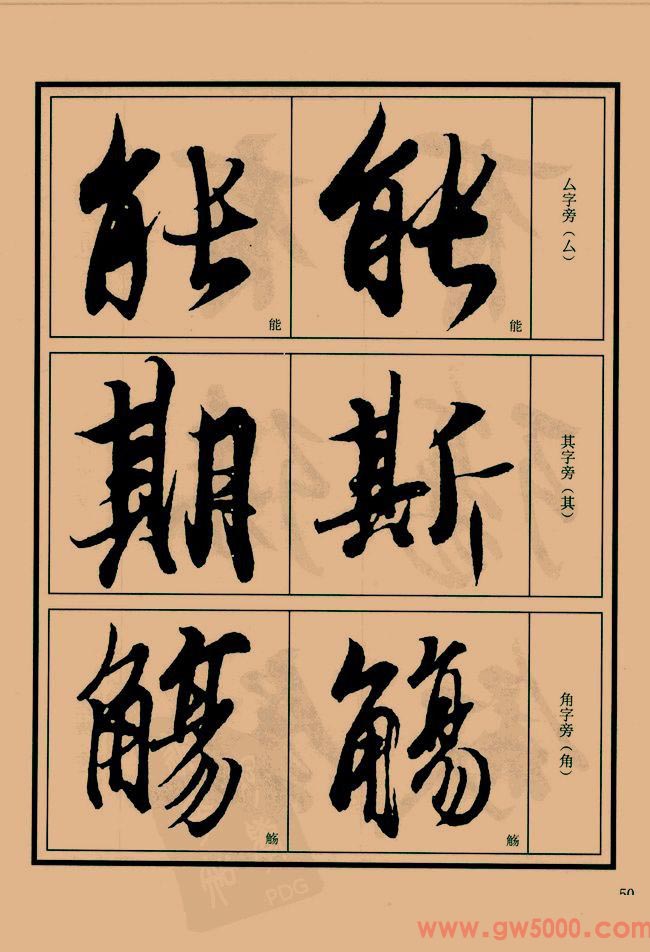 厶字旁（厶）
能
能
能
能
其字旁（其）
斯
期
角字旁（角）
觞
觴
觞
觴
50
www.gw5000.com
PDG